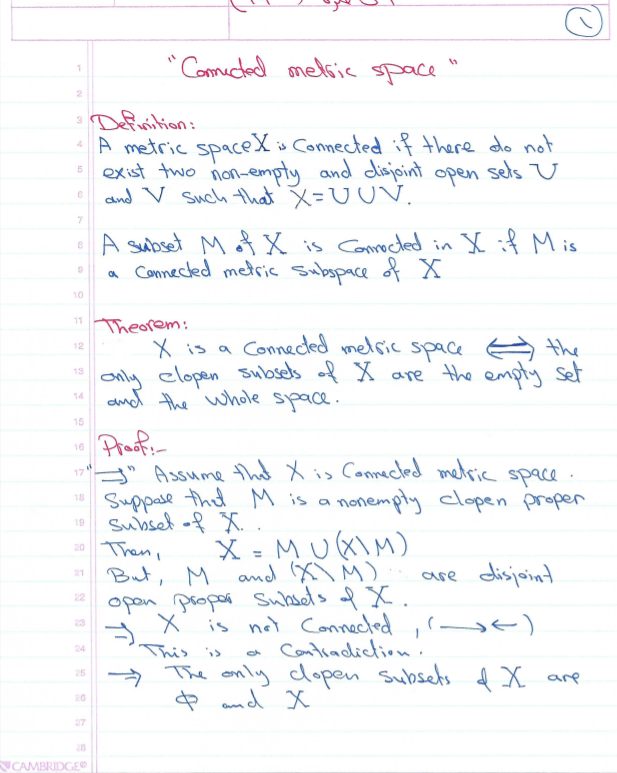 1
"Connected metric space"
Definition:
A metric space X is Connected if there do not
exist two non-empty and disjoint open sets U
and V such that X = U ∪ V.
A subset M of X is Connected in X if M is
a Connected metric subspace of X
Theorem:
X is a Connected metric space ⟺ the
only clopen subsets of X are the empty set
and the whole space.
Proof:-
"⇒" Assume that X is Connected metric space.
Suppose that M is a nonempty clopen proper
subset of X.
Then, X = M ∪ (X\M)
But, M and (X\M) are disjoint
open proper subsets of X.
⇒ X is not Connected, (→←)
This is a Contradiction.
⇒ The only clopen subsets of X are
ϕ and X
CAMBRIDGE